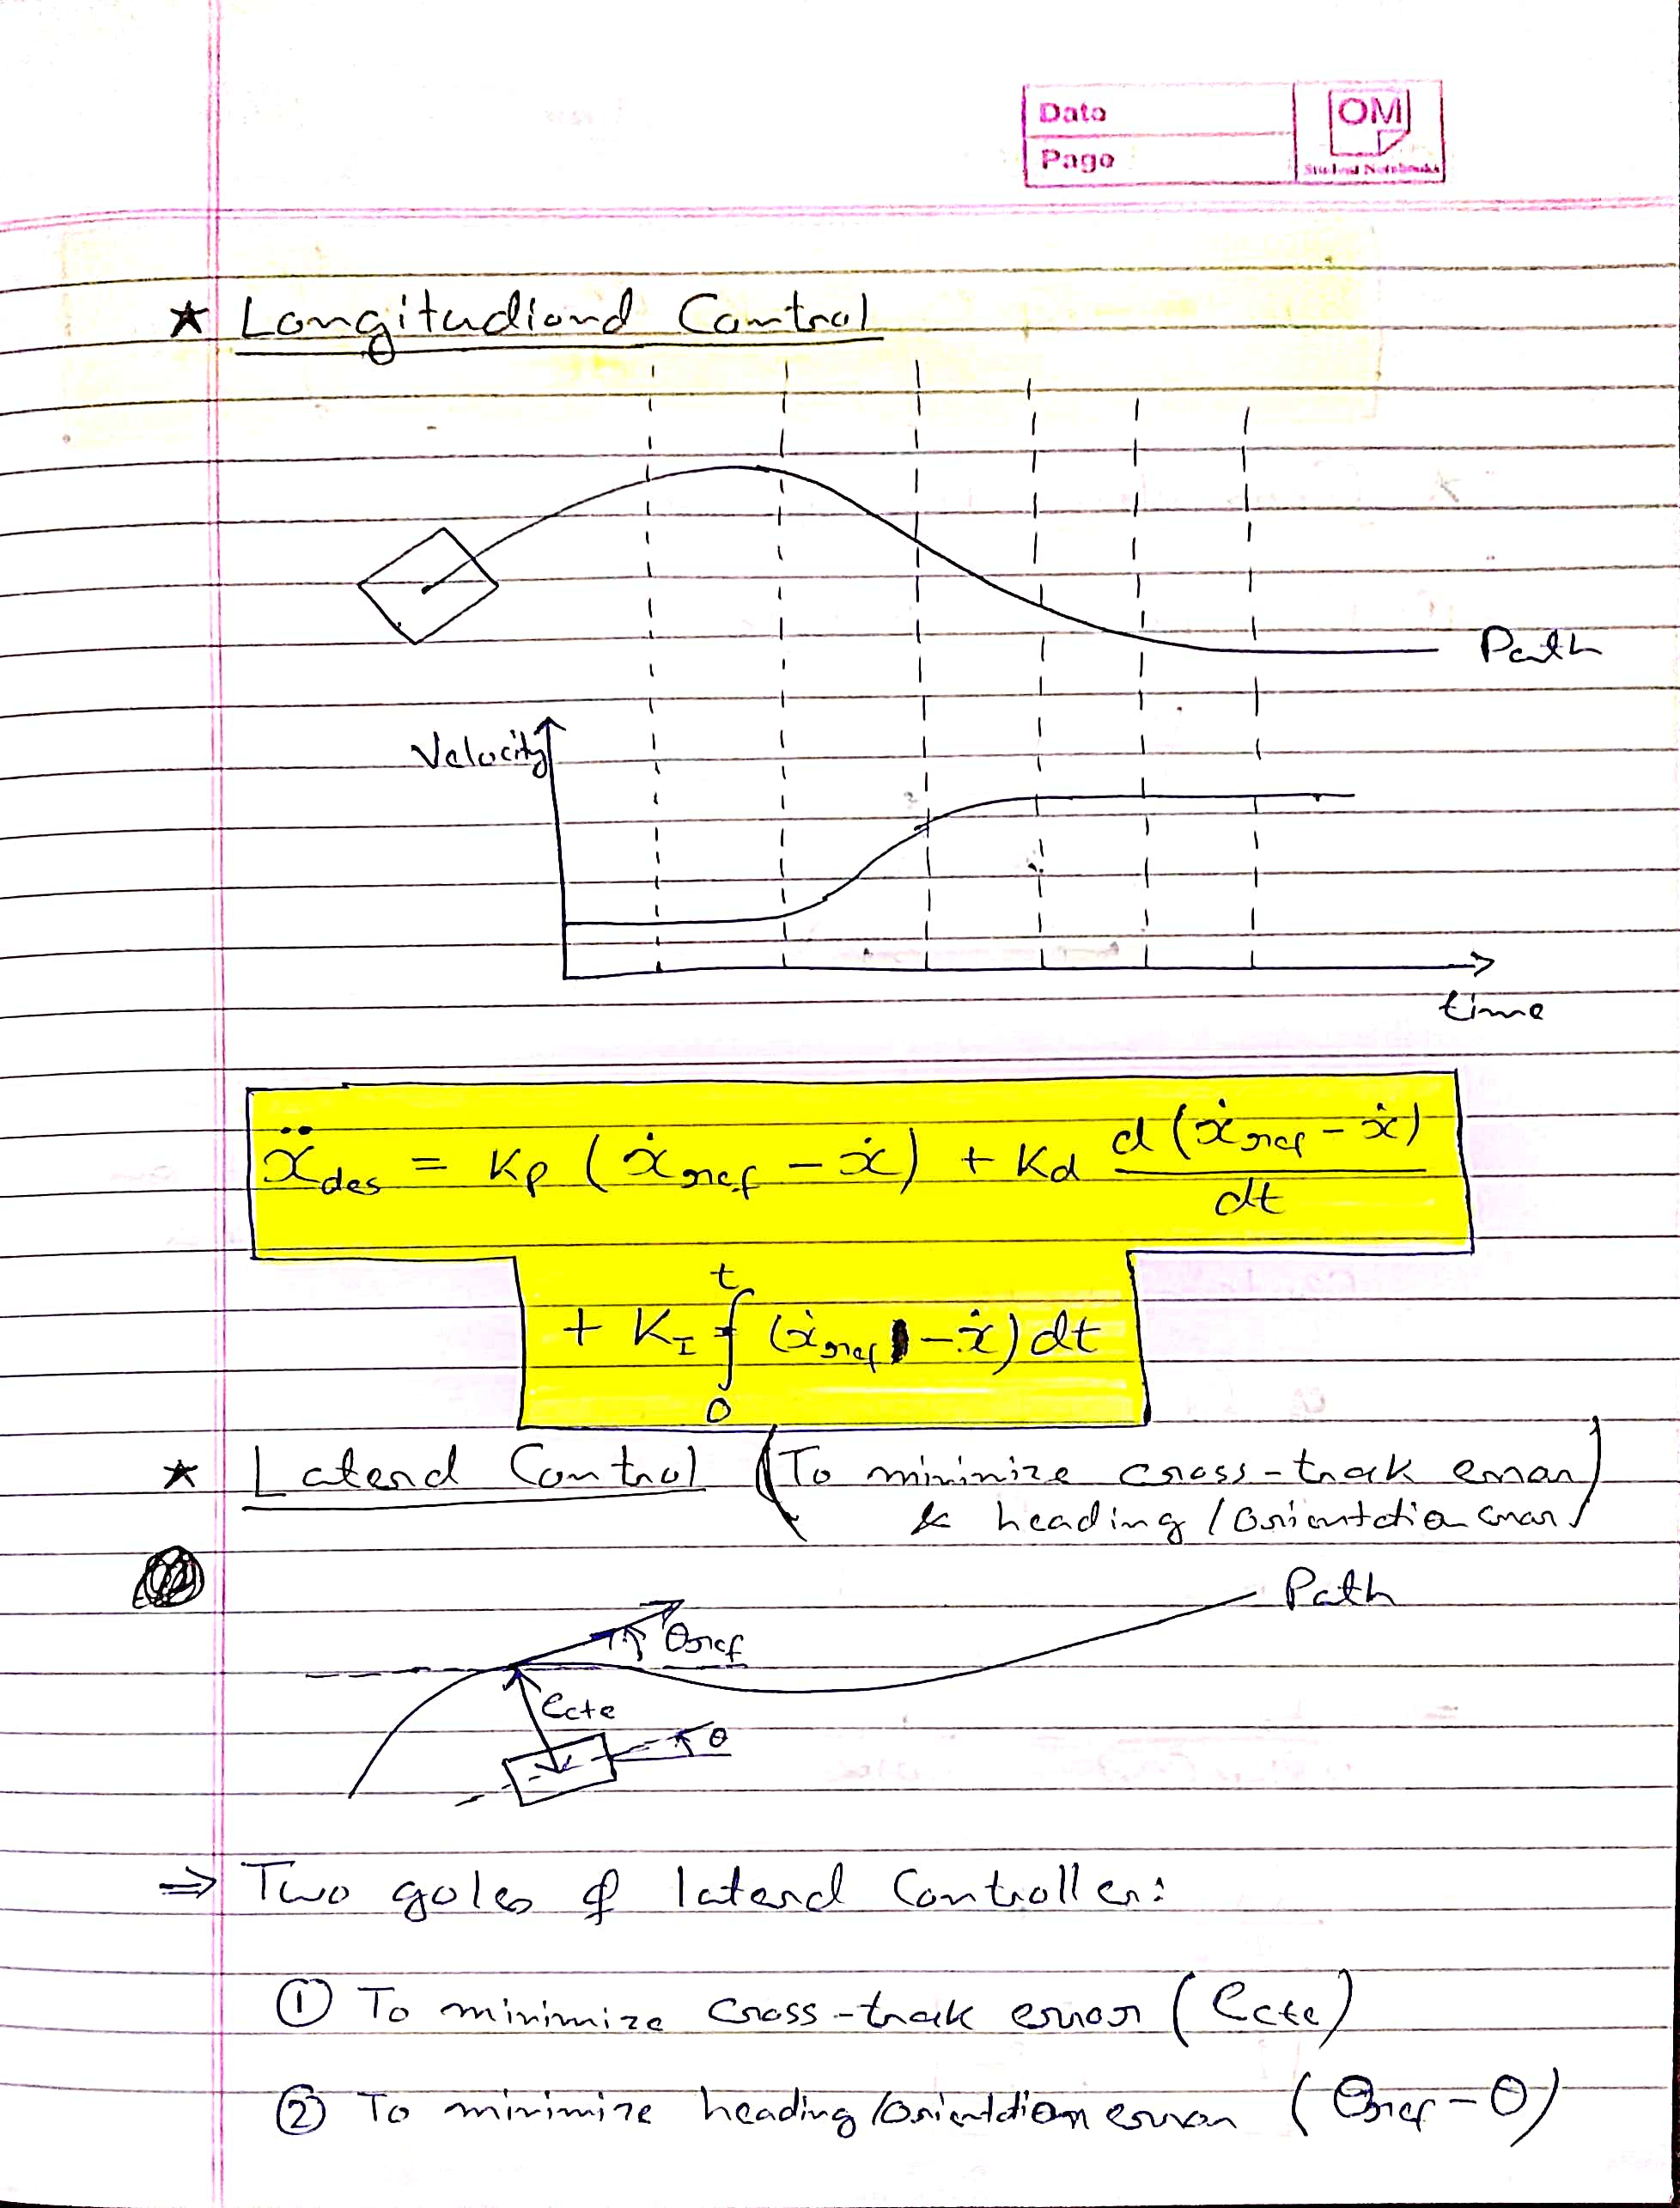 Date
Page
OM
Student Notebooks
★ Longitudional Control
Path
Velocity
time
ẍdes = Kp (ẋref - ẋ) + Kd d(ẋref - ẋ)/dt
+ KI ∫₀ᵗ (ẋref - ẋ) dt
★ Lateral Control (To minimize cross-track error
& heading/orientation error)
Path
θref
ecte
θ
⇒ Two goles of lateral Controller:
① To minimize cross-track error (ecte)
② To minimize heading/orientation error (θref - θ)